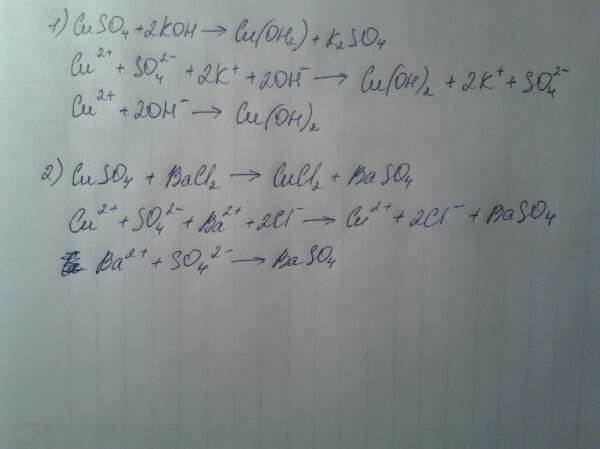 1) CuSO₄ + 2KOH → Cu(OH₂) + K₂SO₄
Cu²⁺ + SO₄²⁻ + 2K⁺ + 2OH⁻ → Cu(OH)₂ + 2K⁺ + SO₄²⁻
Cu²⁺ + 2OH⁻ → Cu(OH)₂
2) CuSO₄ + BaCl₂ → CuCl₂ + BaSO₄
Cu²⁺ + SO₄²⁻ + Ba²⁺ + 2Cl⁻ → Cu²⁺ + 2Cl⁻ + BaSO₄
Ba²⁺ + SO₄²⁻ → BaSO₄